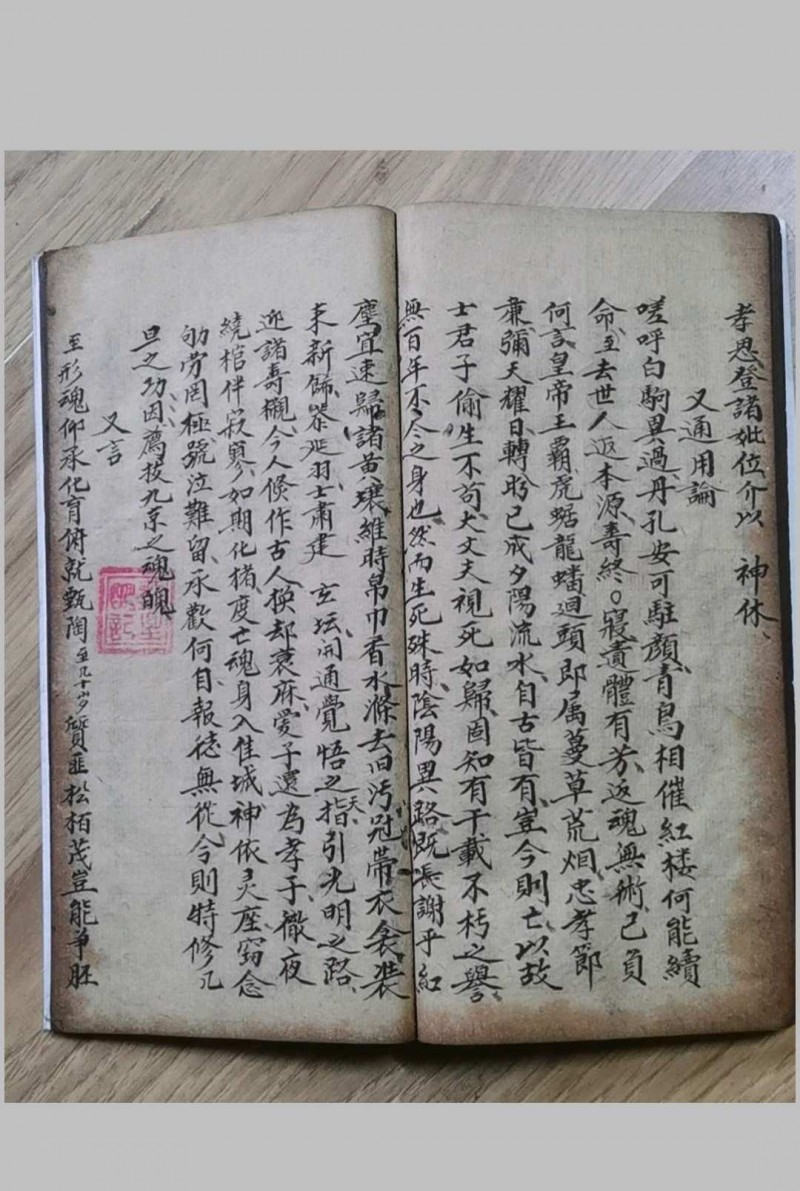 孝思登諸妣位介以　神休、
又通用論
嗟呼白駒異過、丹孔安可駐顏、青鳥相催、紅楼何能續
命、至去世人返本源、壽終○寢、遺體有芳、返魂無術、已負
何言、皇帝王霸、虎蟠龍蟠、廻頭即属蔓草荒烟、忠孝節
亷、彌天耀日、轉盻已成夕陽流水、自古皆有、豈今則亡、以故
士君子偷生不苟、大丈夫視死如歸、固知有千載不朽之譽、
無百年不仝之身也、然而生死殊時、陰陽異路、既長謝乎紅
塵、宜速歸諸黄壤、維時帛巾香水滌去旧汚、冠帶衣衾、装
来新餙、恭延羽士肅建　玄坛、開通覺悟之指天、引光明之路、
迎諸壽櫬、今人倏作古人、換却衰麻、愛子還為孝子、徹夜
繞棺伴寂寥、如期化楮、度亡魂、身入佳城、神依灵座、窃念
劬劳罔極、號泣難留、承歡何自、報徳無從、今則特修几
旦之功、因薦拔九京之魂魄、
又言
至形魂仰承化育俯就甄陶至几十岁質匪松栢茂豈能争胚